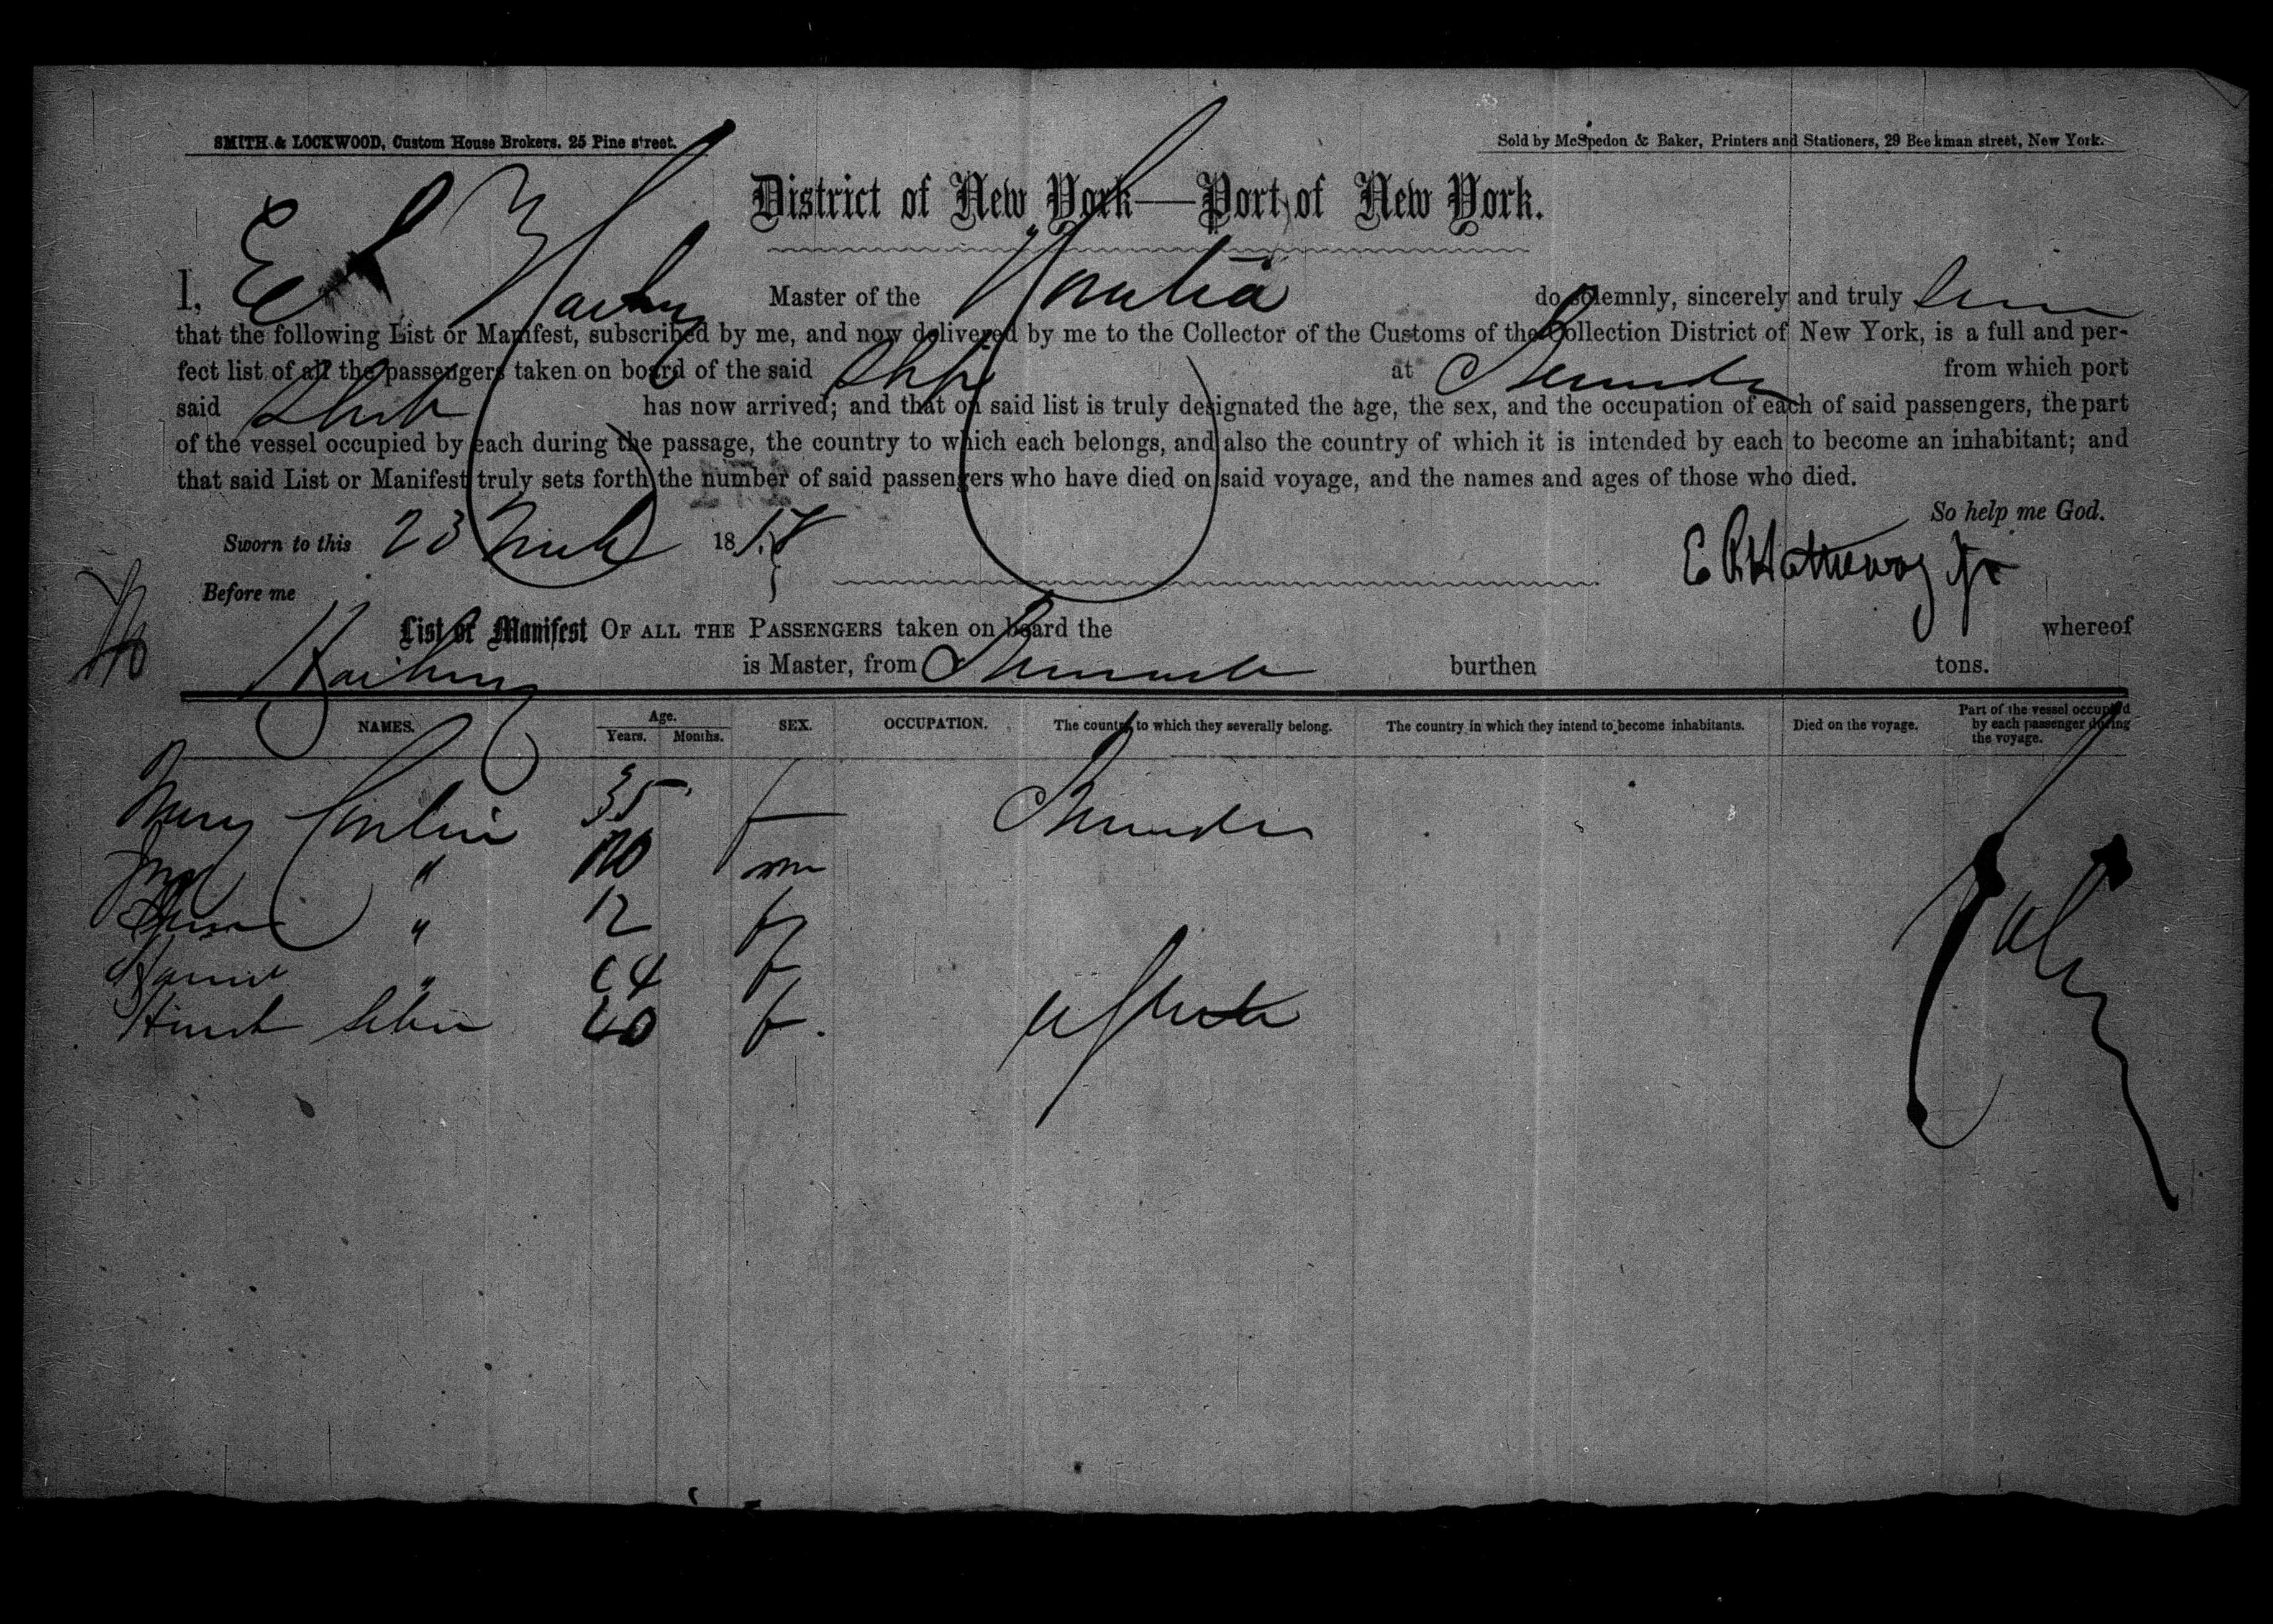 SMITH & LOCKWOOD, Custom House Brokers, 25 Pine street.
Sold by McSpedon & Baker, Printers and Stationers, 29 Beekman street, New York.
District of New York—Port of New York.
I, Master of the do solemnly, sincerely and truly
that the following List or Manifest, subscribed by me, and now delivered by me to the Collector of the Customs of the Collection District of New York, is a full and per-
fect list of all the passengers taken on board of the said Ship at Bermuda from which port
said has now arrived; and that on said list is truly designated the age, the sex, and the occupation of each of said passengers, the part
of the vessel occupied by each during the passage, the country to which each belongs, and also the country of which it is intended by each to become an inhabitant; and
that said List or Manifest truly sets forth the number of said passengers who have died on said voyage, and the names and ages of those who died.
So help me God.
Sworn to this 23 18
E R Hathaway Jr
Before me
List or Manifest OF ALL THE PASSENGERS taken on board the whereof
is Master, from Bermuda burthen tons.
NAMES. Age. Years. Months. SEX. OCCUPATION. The country to which they severally belong. The country in which they intend to become inhabitants. Died on the voyage. Part of the vessel occupied by each passenger during the voyage.
Mary 35 f Bermuda
" m
" 12 f
" f
f. U States